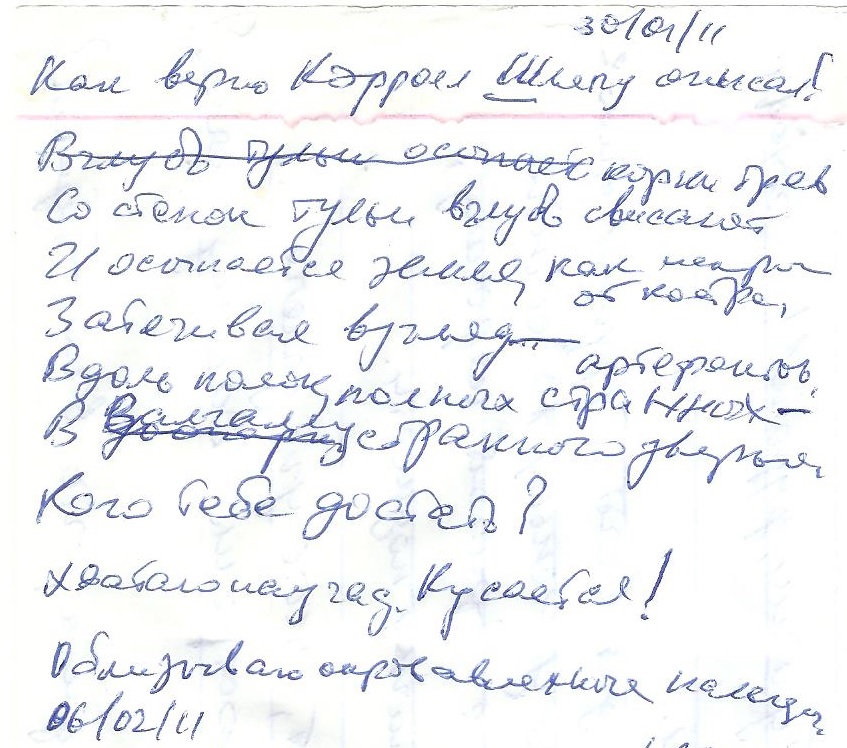 30/01/11
Как верно Кэррол Шляпу описал!
Вглубь тульи осыпает корни трав
Со стенок тульи вглубь свисают
И осыпается земля, как искры
от костра,
Затягивая взгляд...
артефактов,
Вдоль полок, полных странных –
В Валгаллу странного зверья,
Кого тебе достать?
Хватаю наугад. Кусается!
Облизываю окровавленные пальцы,
06/02/11